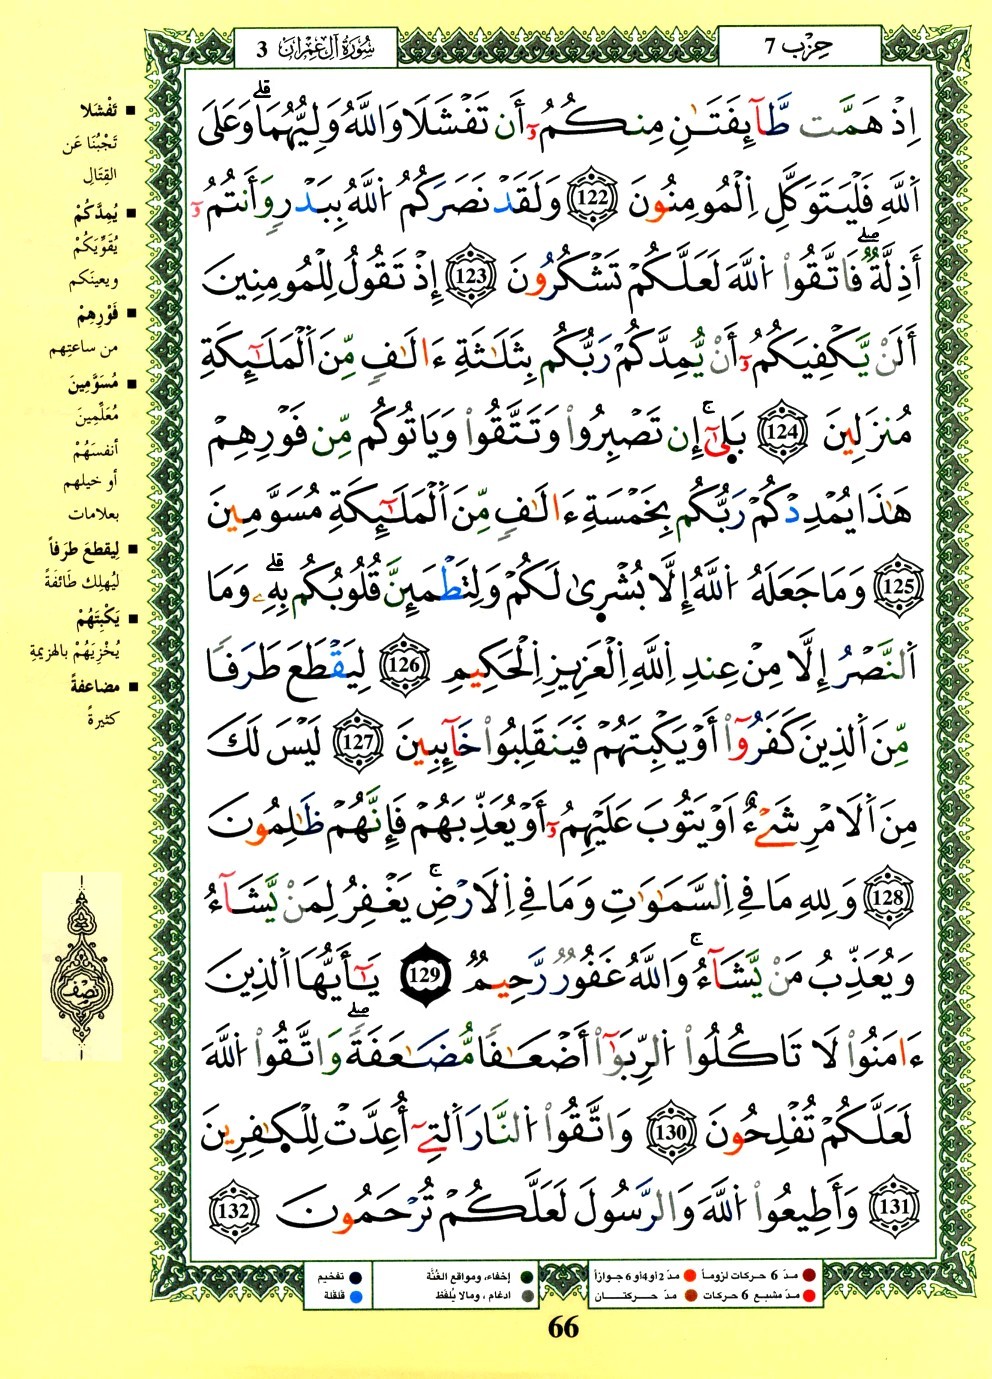 حِزْب 7
سُورَةُ آلِ عِمْرَان 3
اِذْ هَمَّت طَّآئِفَتَٰنِ مِنكُمُۥٓ أَن تَفْشَلَا وَاللَّهُ وَلِيُّهُمَا ۗ وَعَلَى
اَ۬للَّهِ فَلْيَتَوَكَّلِ اِ۬لْمُومِنُونَ 122 وَلَقَدْ نَصَرَكُمُ اُ۬للَّهُ بِبَدْرٍ وَأَنتُمُۥٓ
أَذِلَّةٌ ۖ فَاتَّقُوا اُ۬للَّهَ لَعَلَّكُمْ تَشْكُرُونَ 123 إِذْ تَقُولُ لِلْمُومِنِينَ
أَلَنْ يَّكْفِيَكُمُۥٓ أَنْ يُّمِدَّكُمْ رَبُّكُم بِثَلَٰثَةِ ءَالَٰفٍ مِّنَ اَ۬لْمَلَٰٓئِكَةِ
مُنزَلِينَ 124 بَلَىٰٓ ۚ إِن تَصْبِرُوا وَتَتَّقُوا وَيَاتُوكُم مِّن فَوْرِهِمْ
هَٰذَا يُمْدِدْكُمْ رَبُّكُم بِخَمْسَةِ ءَالَٰفٍ مِّنَ اَ۬لْمَلَٰٓئِكَةِ مُسَوَّمِينَ
125 وَمَا جَعَلَهُ اُ۬للَّهُ إِلَّا بُشْرِىٰ لَكُمْ وَلِتَطْمَئِنَّ قُلُوبُكُم بِهِۦ ۗ وَمَا
اَ۬لنَّصْرُ إِلَّا مِنْ عِندِ اِ۬للَّهِ اِ۬لْعَزِيزِ اِ۬لْحَكِيمِ 126 لِيَقْطَعَ طَرَفًا
مِّنَ اَ۬لذِينَ كَفَرُوٓا أَوْ يَكْبِتَهُمْ فَيَنقَلِبُوا خَآئِبِينَ 127 لَيْسَ لَكَ
مِنَ اَ۬لَامْرِ شَےْءٌ اَوْ يَتُوبَ عَلَيْهِمُۥٓ أَوْ يُعَذِّبَهُمْ فَإِنَّهُمْ ظَٰلِمُونَ
128 وَلِلهِ مَا فِے اِ۬لسَّمَٰوَٰتِ وَمَا فِے اِ۬لَارْضِ ۚ يَغْفِرُ لِمَنْ يَّشَآءُ
وَيُعَذِّبُ مَنْ يَّشَآءُ ۚ وَاللَّهُ غَفُورٌ رَّحِيمٌ 129 يَٰٓأَيُّهَا اَ۬لذِينَ
ءَامَنُوا لَا تَاكُلُوا اُ۬لرِّبَوٰٓا أَضْعَٰفًا مُّضَٰعَفَةً ۖ وَاتَّقُوا اُ۬للَّهَ
لَعَلَّكُمْ تُفْلِحُونَ 130 وَاتَّقُوا اُ۬لنَّارَ اَ۬لتِےٓ أُعِدَّتْ لِلْكٰفِرِينَ
131 وَأَطِيعُوا اُ۬للَّهَ وَالرَّسُولَ لَعَلَّكُمْ تُرْحَمُونَ 132
تَفْشَلا
تَجْبُنَا عَن
القِتَالِ
يُمِدَّكُمْ
يُقَوِّيَكُمْ
ويعينَكم
فَوْرِهِمْ
من ساعتِهم
مُسَوَّمِينَ
مُعَلِّمِينَ
أنفسَهُمْ
أو خيلهم
بعلامات
لِيقطعَ طرَفاً
ليُهلِك طَائفةً
يَكْبِتَهُمْ
يُخْزِيَهُمْ بالهزيمةِ
مضاعفةً
كثيرةً
نصف
مدّ 6 حركات لزوماً
مدّ 2 أو 4 أو 6 جوازاً
مدّ مشبع 6 حركات
مدّ حركتان
إخفاء، ومواقع الغُنَّة
ادغام ، ومالا يُلفَظ
تفخيم
قلقلة
66